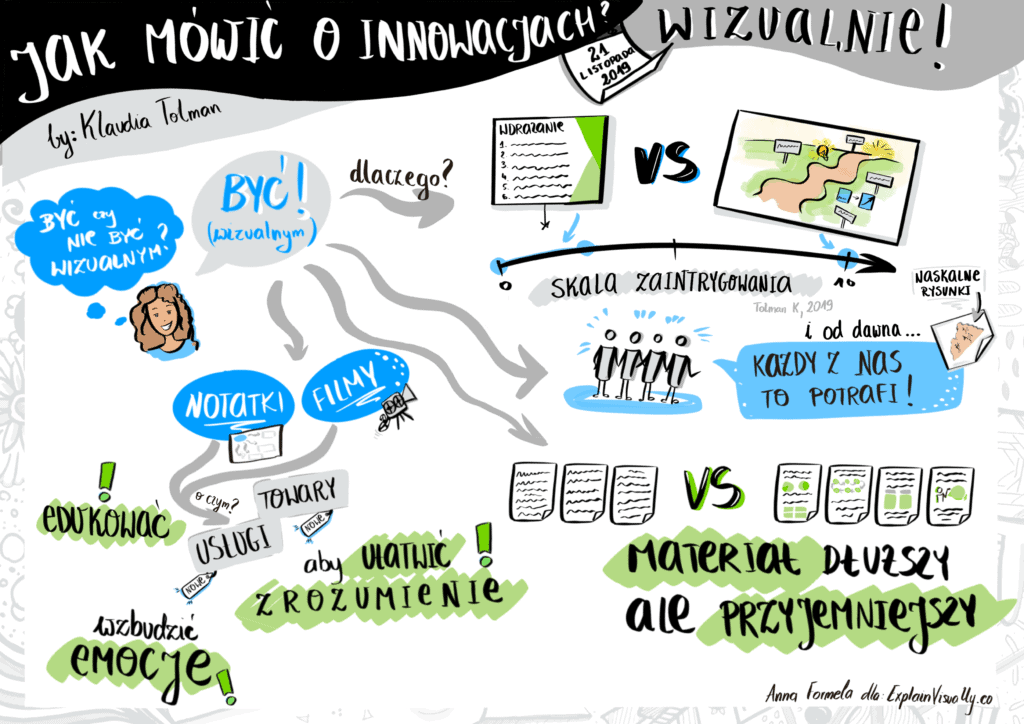 JAK MÓWIĆ O INNOWACJACH?
WIZUALNIE!
21
LISTOPADA
2019
by: Klaudia Tolman
BYĆ czy
NIE BYĆ
WIZUALNYM?
BYĆ!
(wizualnym)
dlaczego?
WDRAŻANIE
1.
2.
3.
4.
5.
6.
VS
0
10
SKALA ZAINTRYGOWANIA
Tolman K, 2019
NASKALNE
RYSUNKI
i od dawna...
KAŻDY Z NAS
TO POTRAFI!
NOTATKI
FILMY
!
EDUKOWAĆ
o czym?
TOWARY
NOWE
USŁUGI
NOWE
aby UŁATWIĆ!
ZROZUMIENIE
wzbudzić
EMOCJE!
VS
MATERIAŁ DŁUŻSZY
ALE PRZYJEMNIEJSZY
Anna Formela dla: ExplainVisually.co